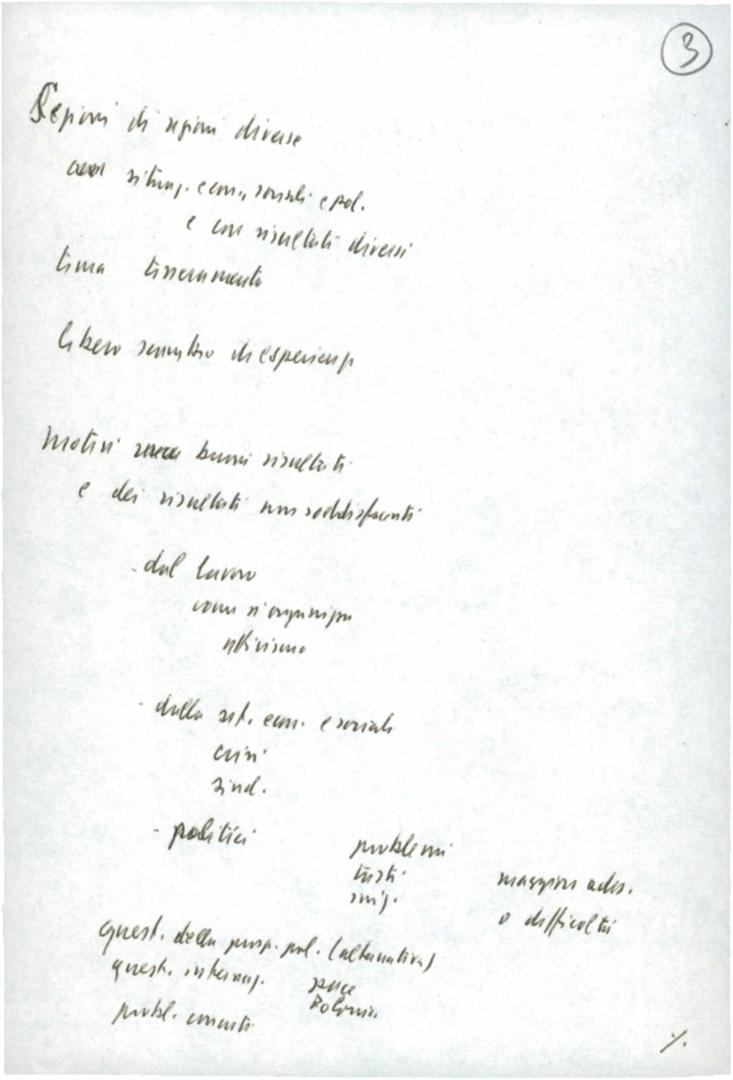 3
Sezioni di regioni diverse
con situaz. econ., sociali e pol.
e con risultati diversi
tema tesseramento
libero scambio di esperienze
motivi buoni risultati
e dei risultati non soddisfacenti
- dal lavoro
come si organizza
attivismo
- dalla sit. econ. e sociale
crisi
sind.
- politici
problemi
tutti
maggiori ades.
o difficoltà
quest. della prosp. pol. (alternativa)
quest. internaz. pace
Polonia
probl. concreti
%.